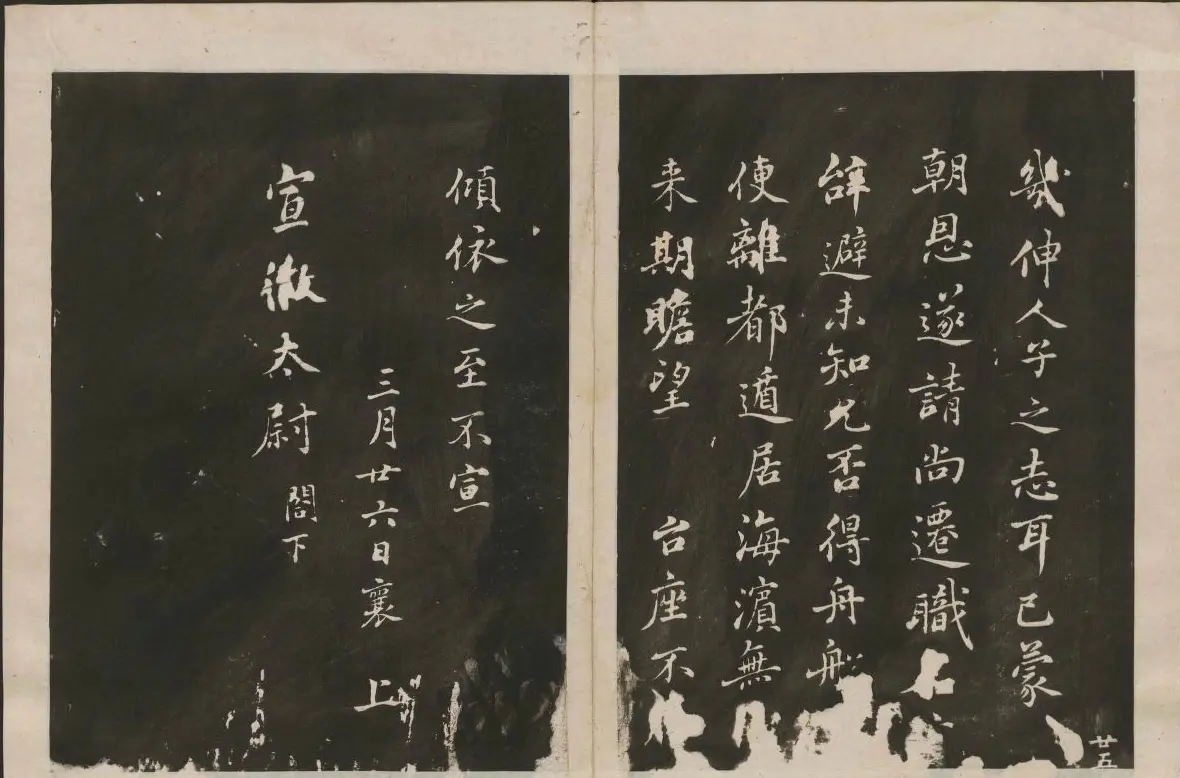 幾伸人子之志耳已蒙
朝恩遂請尚遷職
辞避未知允否得舟船
便離都遁居海濱無
来期瞻望 台座不
廿五
傾依之至不宣
三月廿六日襄 上
宣徽太尉 閤下